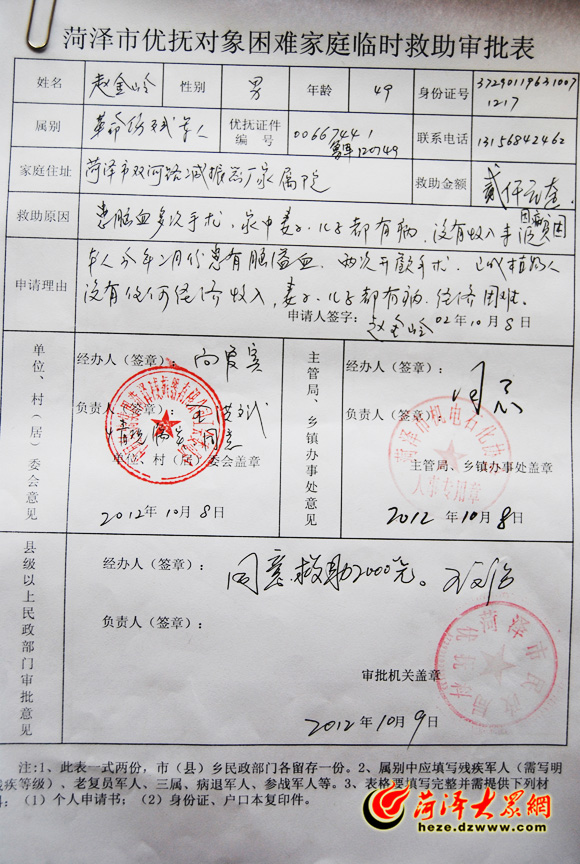 菏泽市优抚对象困难家庭临时救助审批表
姓名 赵金岭 性别 男 年龄 49 身份证号 372901196310071217
属别 革命伤残军人 优抚证件编号 00667441 鲁军120749 联系电话 13156842462
家庭住址 菏泽市双河路减振器厂家属院 救助金额 贰仟元整
救助原因 患脑血多次手术,家中妻子、儿子都有病,没有收入来源 因病贫困
申请理由 本人今年2月份患有脑溢血,两次开颅手术,已成植物人
没有任何经济收入,妻子、儿子都有病,经济困难。
申请人签字: 赵金岭 02年10月8日
单位、村(居)委会意见
经办人(签章):
负责人(签章):
情况属实,同意
单位、村(居)委会盖章
2012年10月8日
主管局、乡镇办事处意见
经办人(签章):
同意
负责人(签章):
菏泽市机电石化办
人事专用章
主管局、乡镇办事处盖章
2012年10月8日
县级以上民政部门审批意见
经办人(签章): 同意救助2000元。
负责人(签章):
菏泽市民政局
优抚
审批机关盖章
2012年10月9日
注:1、此表一式两份,市(县)乡民政部门各留存一份。2、属别中应填写残疾军人(需写明
残疾等级)、老复员军人、三属、病退军人、参战军人等。3、表格要填写完整并需提供下列材
料:(1)个人申请书;(2)身份证、户口本复印件。
菏泽大众網
heze.dzwww.com